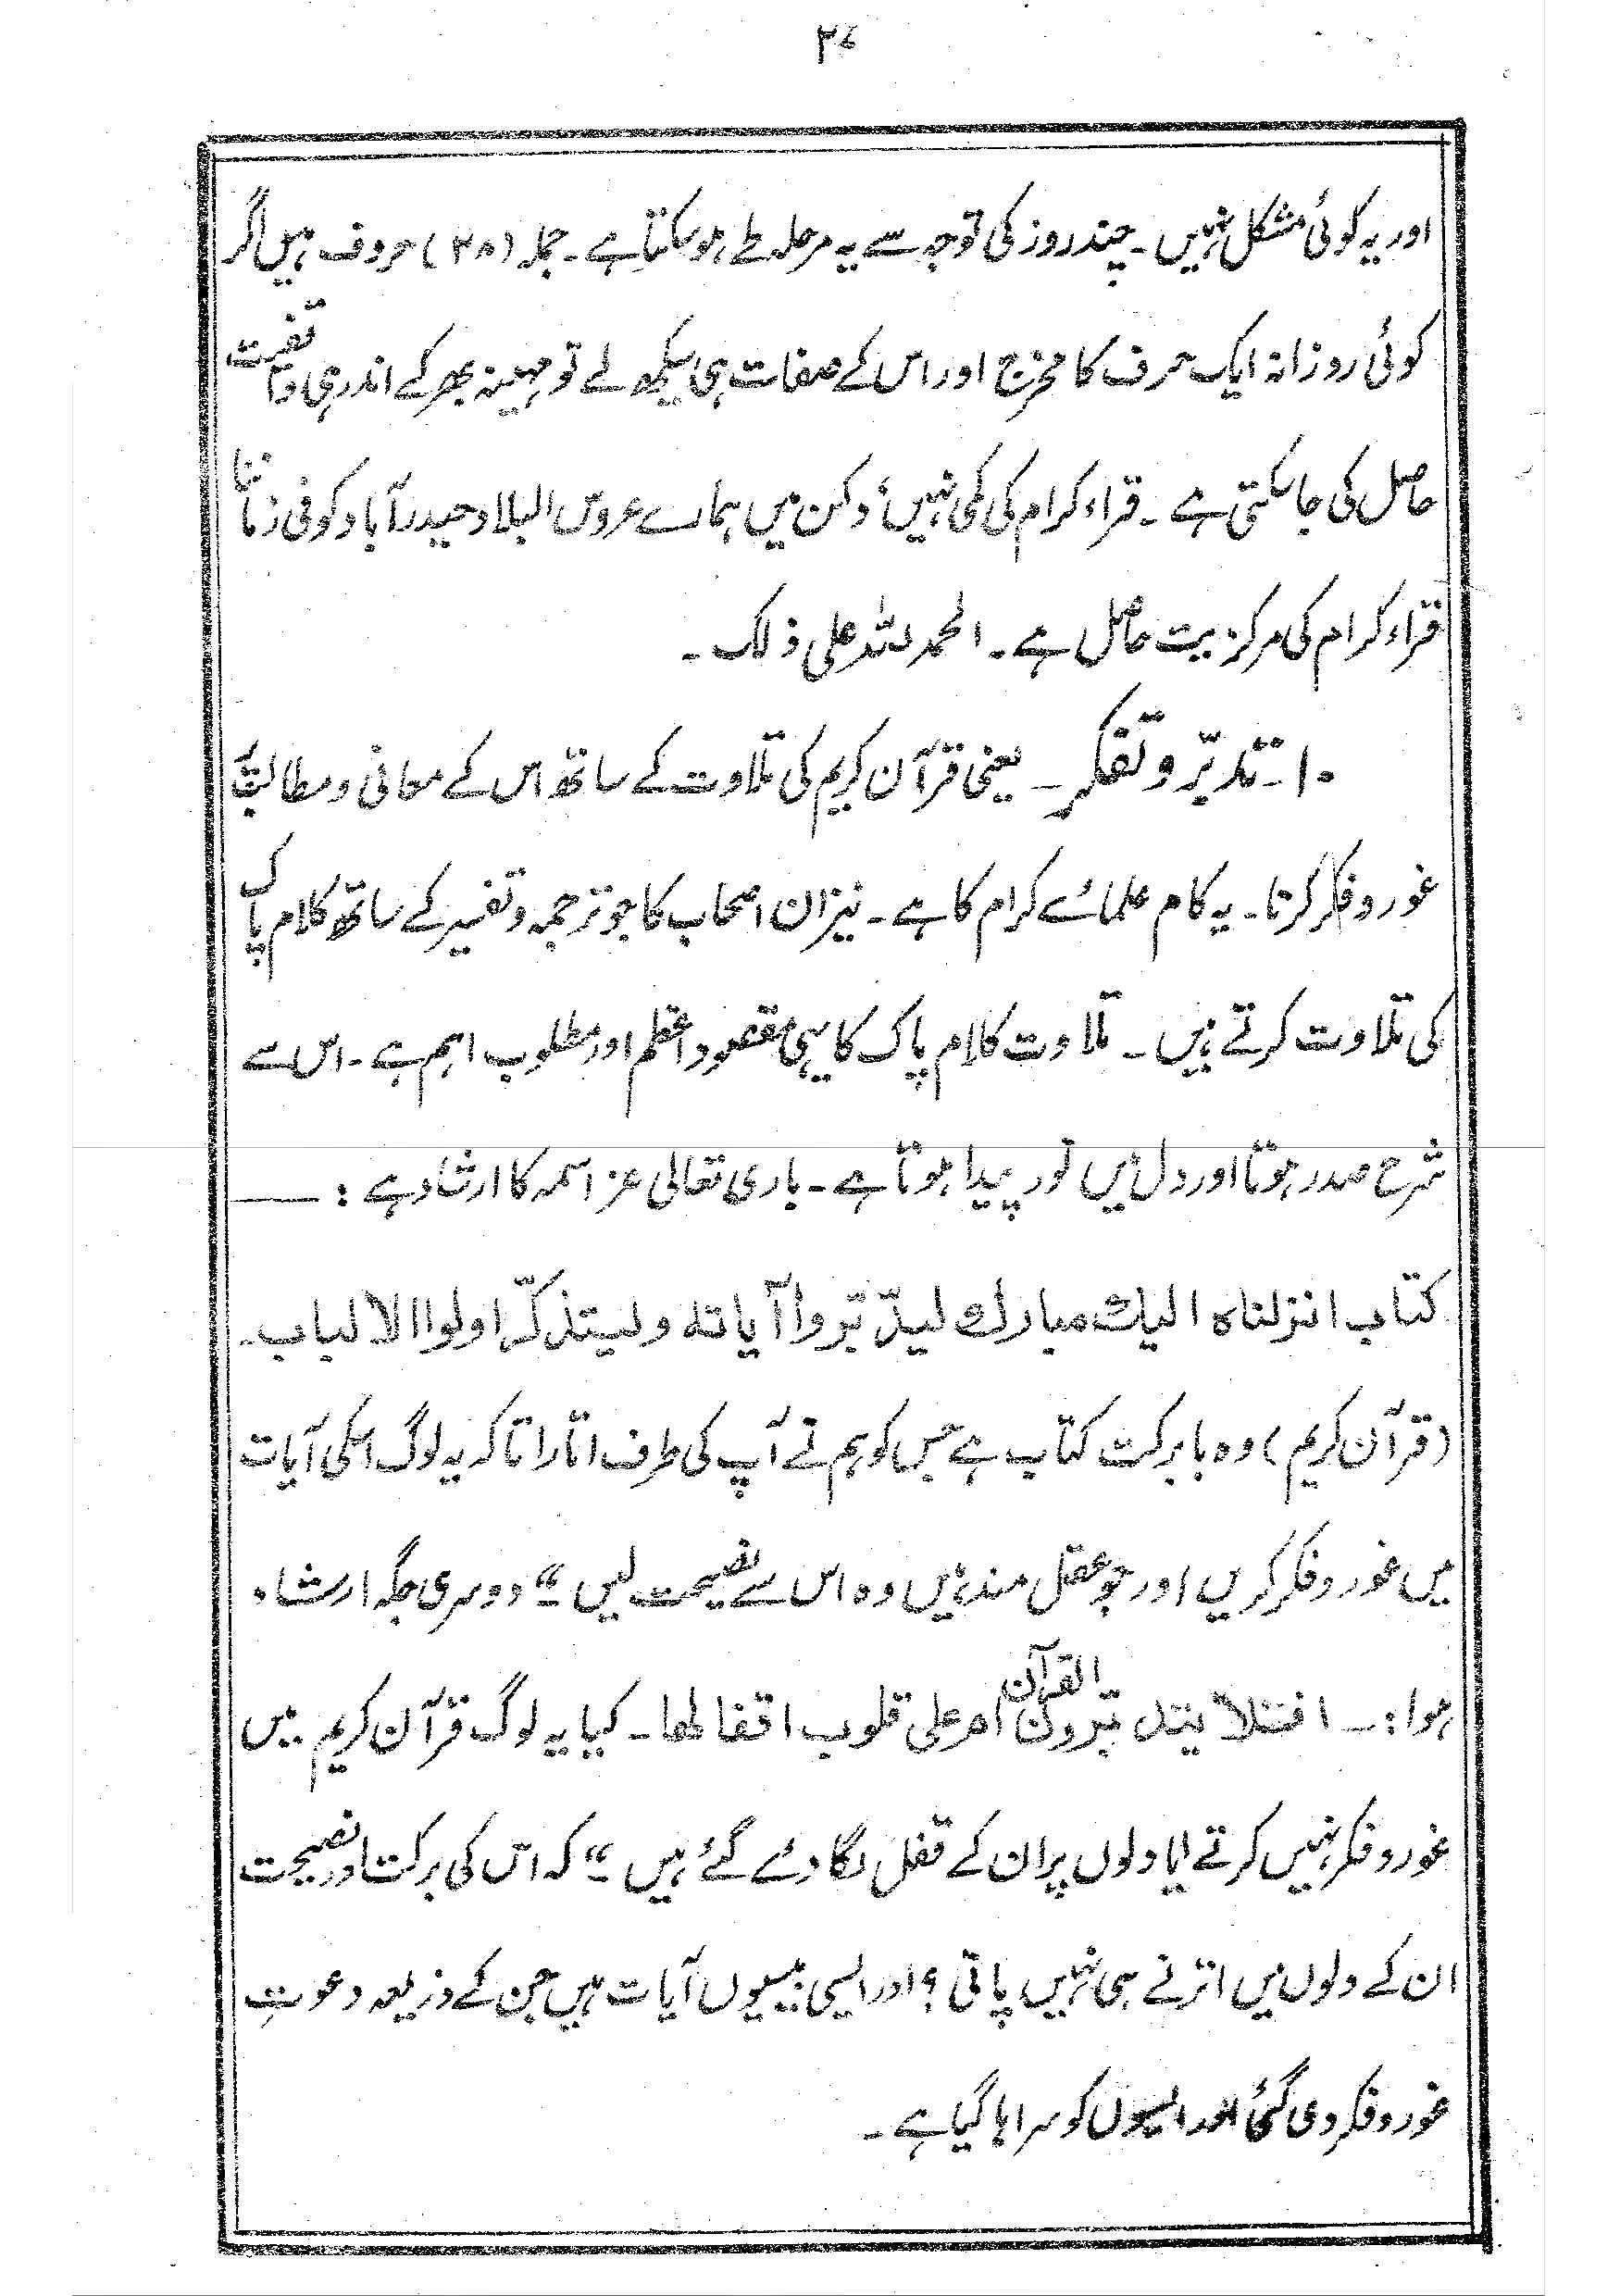 ۲۶
اور یہ کوئی مشکل نہیں ۔ چند روز کی توجہ سے یہ مرحلہ طے ہو سکتا ہے ۔ جملہ (۲۸) حروف ہیں اگر
کوئی روزانہ ایک حرف کا مخرج اور اس کے صفات ہی سیکھ لے تو مہینہ بھر کے اندر ہی واقفیت
حاصل کی جا سکتی ہے ۔ قراء کرام کی کمی نہیں، دکن میں ہمارے عروس البلاد حیدرآباد کو فی زماننا
قراء کرام کی مرکزیت حاصل ہے ۔ الحمد للہ علی ذلک ۔
۱۰ ۔ تدبّر و تفکر ۔ یعنی قرآن کریم کی تلاوت کے ساتھ اس کے معانی و مطالب پر
غور و فکر کرنا ۔ یہ کام علمائے کرام کا ہے ۔ نیز ان اصحاب کا جو ترجمہ و تفسیر کے ساتھ کلام پاک
کی تلاوت کرتے ہیں ۔ تلاوت کلام پاک کا یہی مقصود اعظم اور مطلوب اہم ہے ۔ اس سے
شرح صدر ہوتا اور دل میں نور پیدا ہوتا ہے ۔ باری تعالی عز اسمہ کا ارشاد ہے : ——
کتاب انزلناہ الیك مبارك لیدّبّروا آیاتہ و لیتذکّر اولوا الالباب ۔
(قرآن کریم) وہ بابرکت کتاب ہے جس کو ہم نے آپ کی طرف اتارا تاکہ یہ لوگ اسکی آیات
میں غور و فکر کریں اور جو عقل مند ہیں وہ اس سے نصیحت لیں ۔“ دوسری جگہ ارشاد
ہوا : ۔ افلا یتدبّرون القرآن ام علی قلوب اقفالھا ۔ کیا یہ لوگ قرآن کریم میں
غور و فکر نہیں کرتے یا دلوں پر ان کے قفل لگا دئے گئے ہیں ۔“ کہ اس کی برکت اور نصیحت
ان کے دلوں میں اترنے ہی نہیں پاتی ؟ اور ایسی بیسیوں آیات ہیں جن کے ذریعہ دعوتِ
غور و فکر دی گئی اور ایسوں کو سراہا گیا ہے ۔